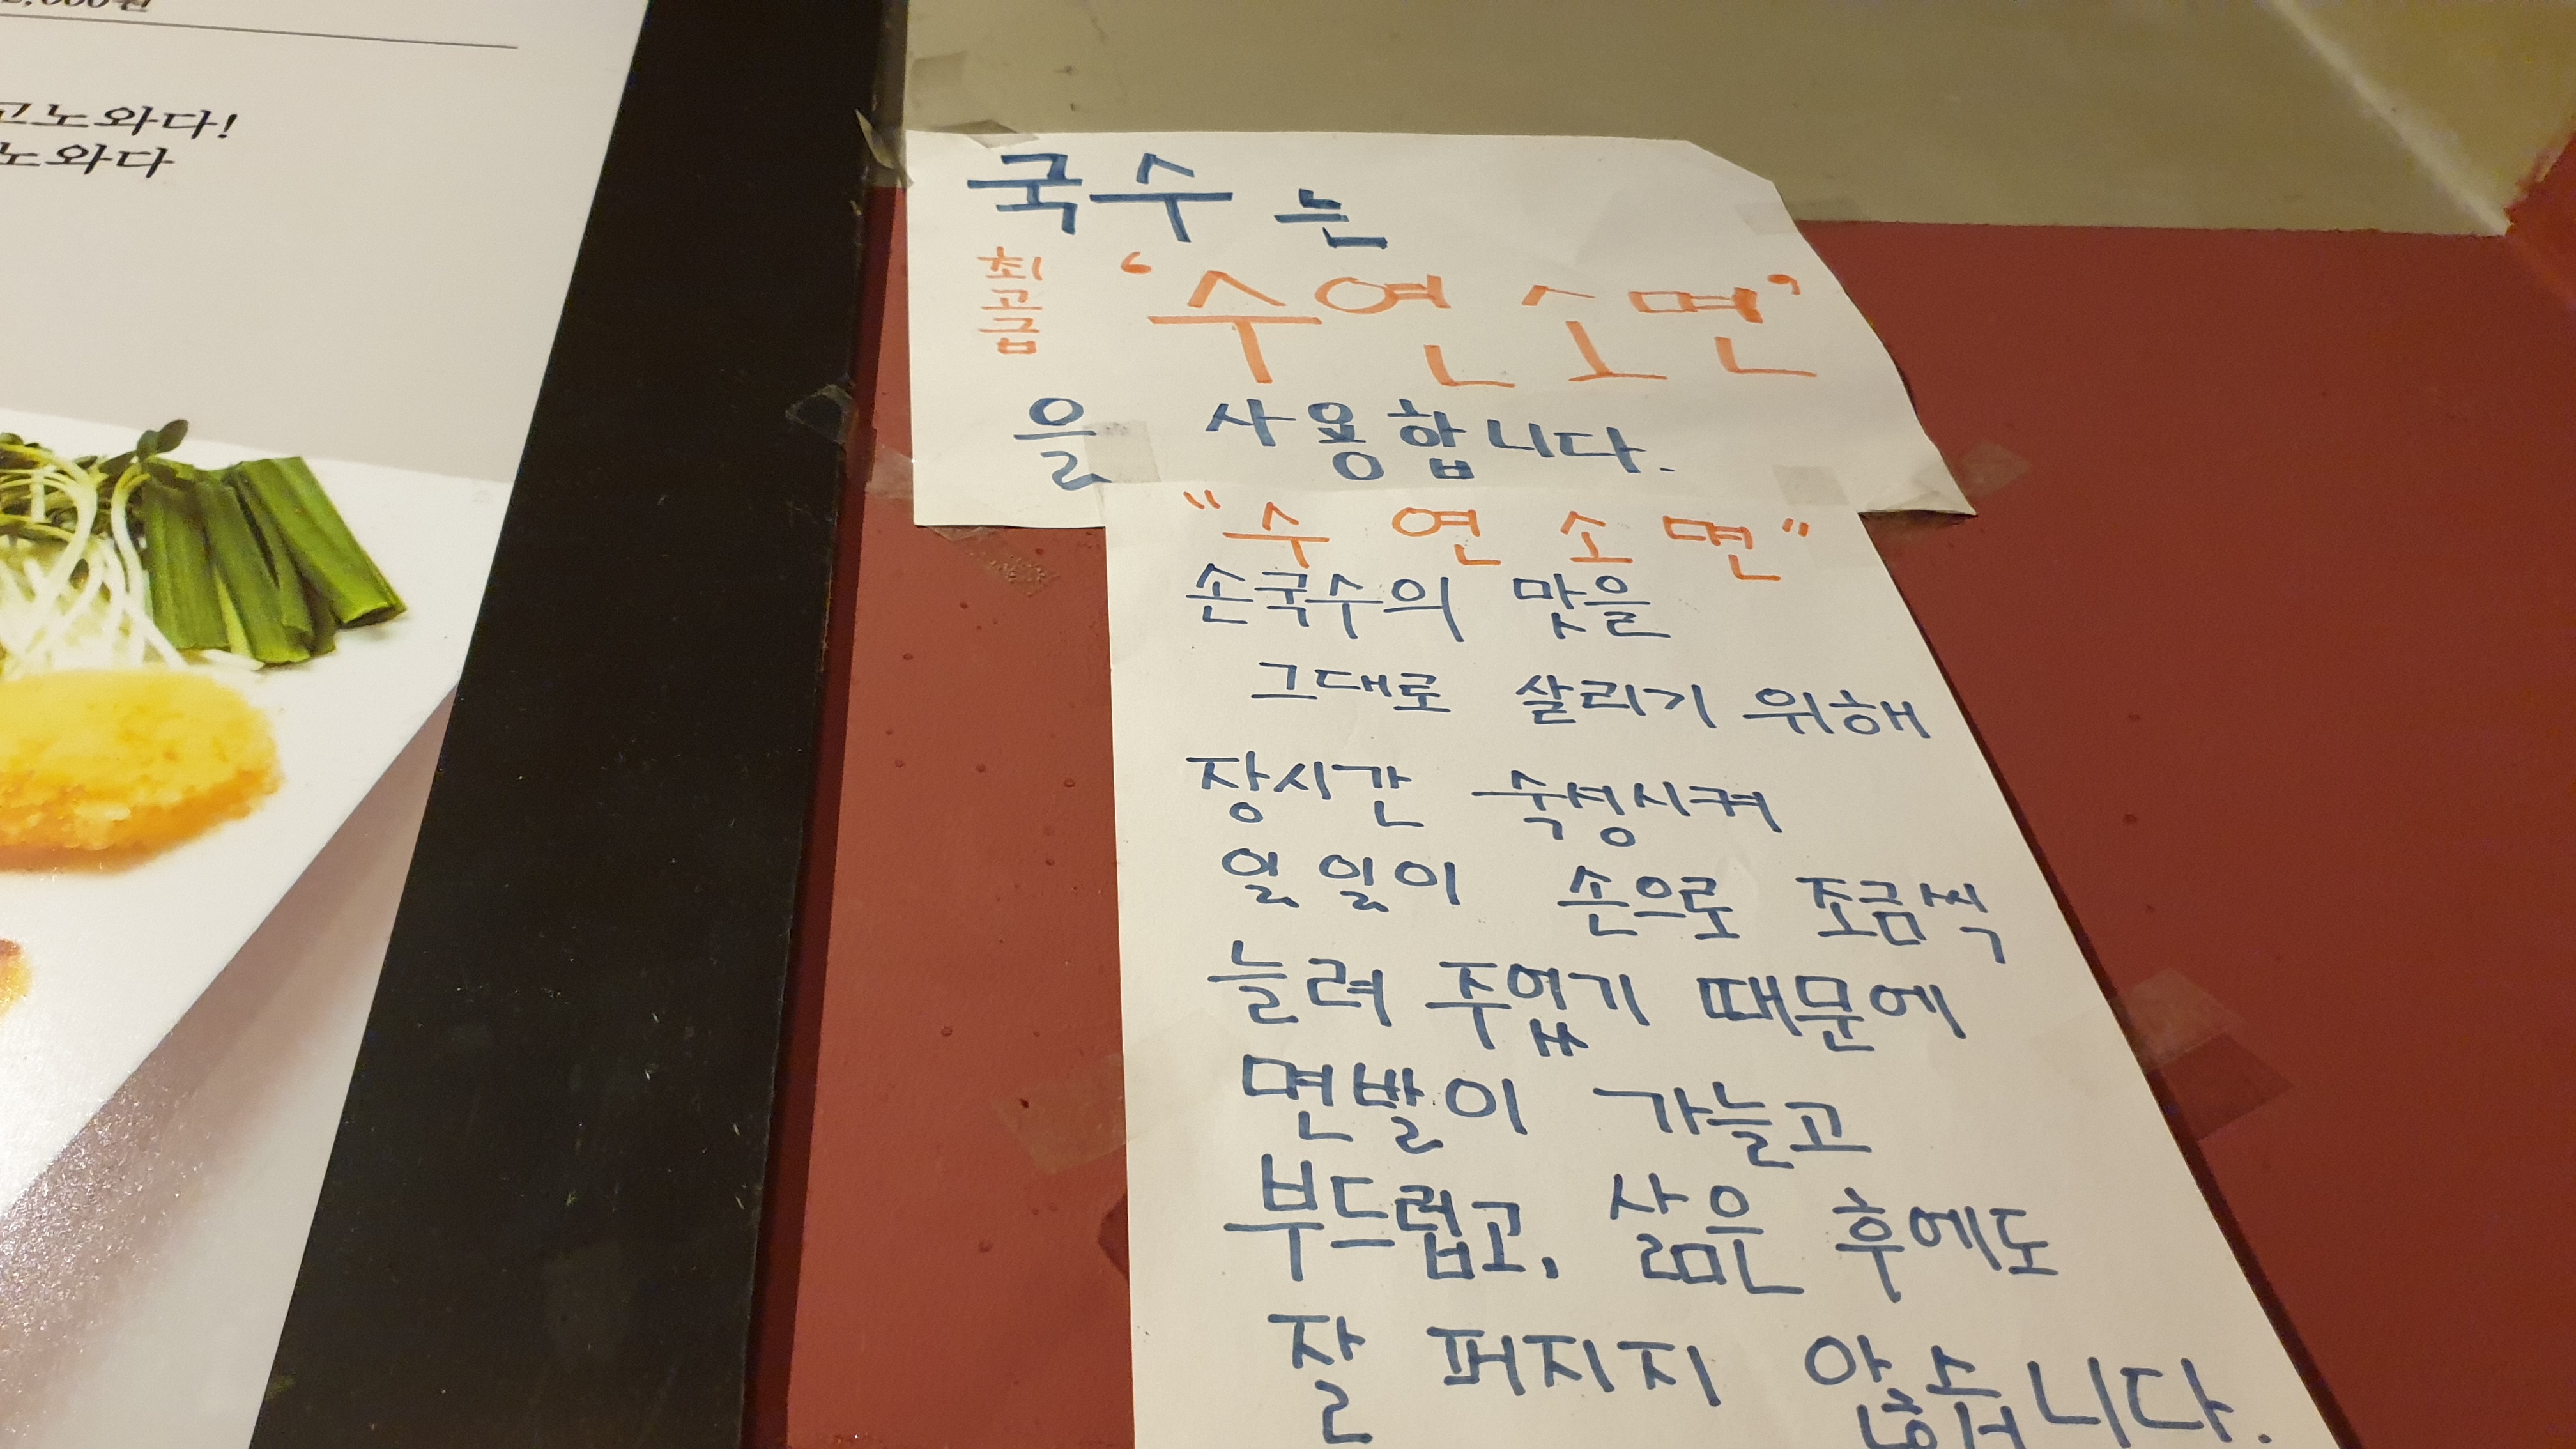 고노와다!
노와다
국수는
최고급 '수연소면'
을 사용합니다.
"수연소면"
손국수의 맛을
그대로 살리기 위해
장시간 숙성시켜
일일이 손으로 조금씩
늘려 주었기 때문에
면발이 가늘고
부드럽고, 삶은 후에도
잘 퍼지지 않습니다.